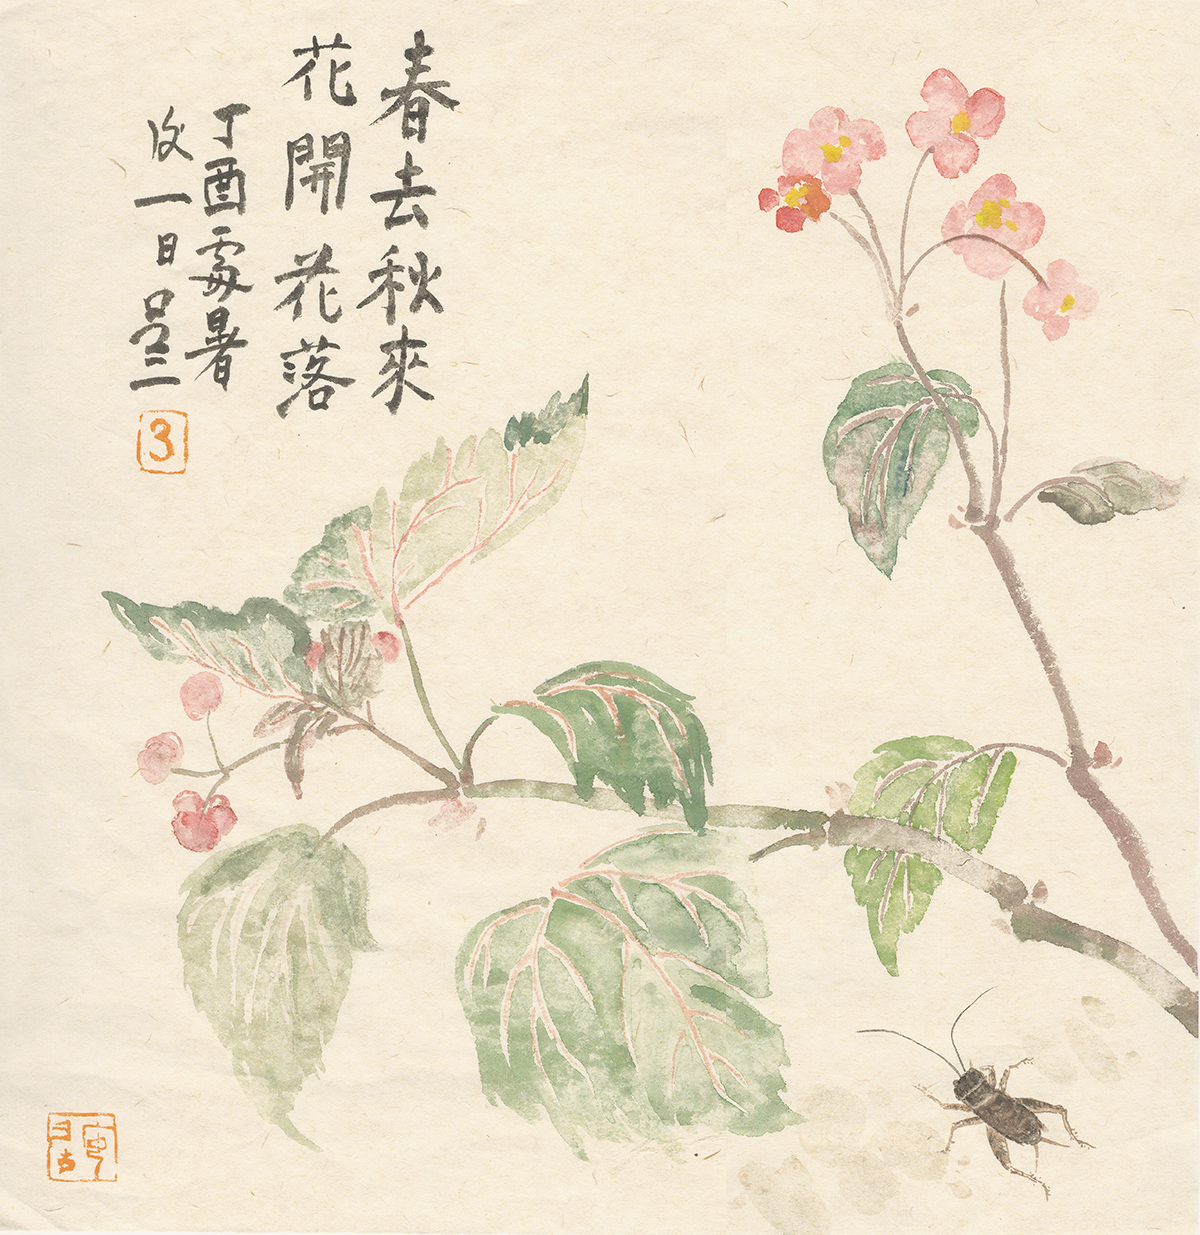 春去秋來
花開花落
丁酉處暑
後一日吕三
3